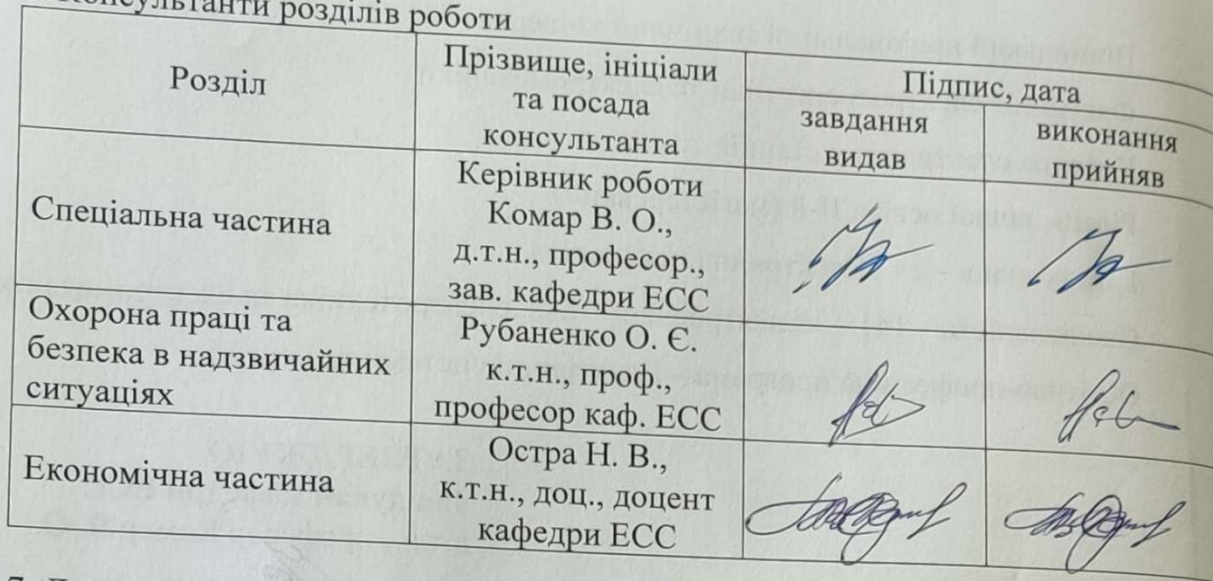 Консультанти розділів роботи
Розділ
Прізвище, ініціали
та посада
консультанта
Підпис, дата
завдання
видав
виконання
прийняв
Спеціальна частина
Керівник роботи
Комар В. О.,
д.т.н., професор.,
зав. кафедри ЕСС
Охорона праці та
безпека в надзвичайних
ситуаціях
Рубаненко О. Є.
к.т.н., проф.,
професор каф. ЕСС
Економічна частина
Остра Н. В.,
к.т.н., доц., доцент
кафедри ЕСС